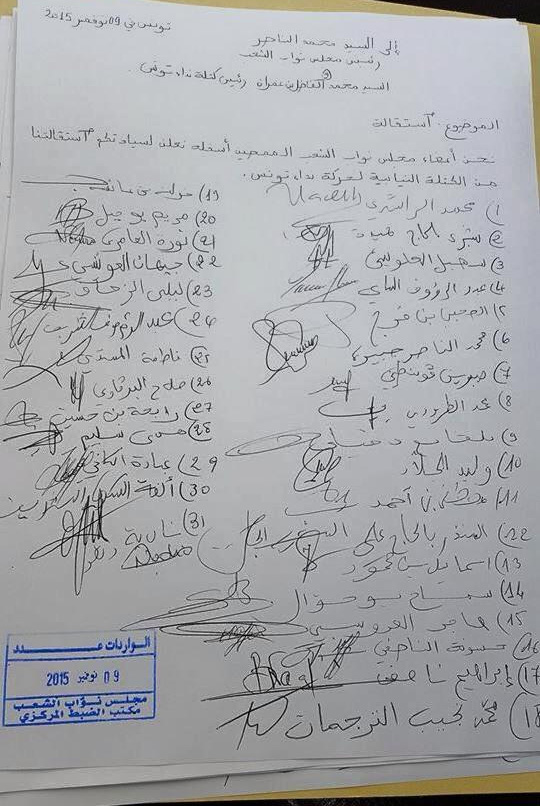 تونس في 09 نوفمبر 2015
إلى السيد محمد الناصر
رئيس مجلس نواب الشعب
و
السيد محمد الفاضل بن عمران رئيس كتلة نداء تونس.
الموضوع: استقالة
نحن أعضاء مجلس نواب الشعب الممضين أسفله نعلن لسيادتكم استقالتنا
من الكتلة النيابية لحركة نداء تونس.
1) محمد الراشدي
2) بشرى بلحاج حميدة
3) سهيل العلويني
4) عبد الرؤوف الماي
5) الصحبي بن فرج
6) محمد الناصر جبيرة
7) صبرين قوبنطيني
8) محمد الطرودي
9) بلقاسم دخيلي
10) وليد الجلاد
11) مصطفى بن أحمد
22) المنذر بالحاج علي
13) اسماعيل بن محمود
14) سماح بوحوال
15) هاجر العروسي
16) حسونة الناصفي
17) إبراهيم ناصف
18) محمد نجيب الترجمان
19) خولة بن عائشة
20) مريم بوجبل
21) نورة العامري
22) جيهان العويشي
23) ليلى الزحاف
24) عبد الرؤوف الشريف
25) فاطمة المسدي
26) صلاح البرقاوي
27) رابحة بن حسين
28) هدى سليم
29) عبادة الكافي
30) ألفة السكري الشريف
31) نادية
الواردات عدد
09 نوفمبر 2015
مجلس نواب الشعب
مكتب الضبط المركزي